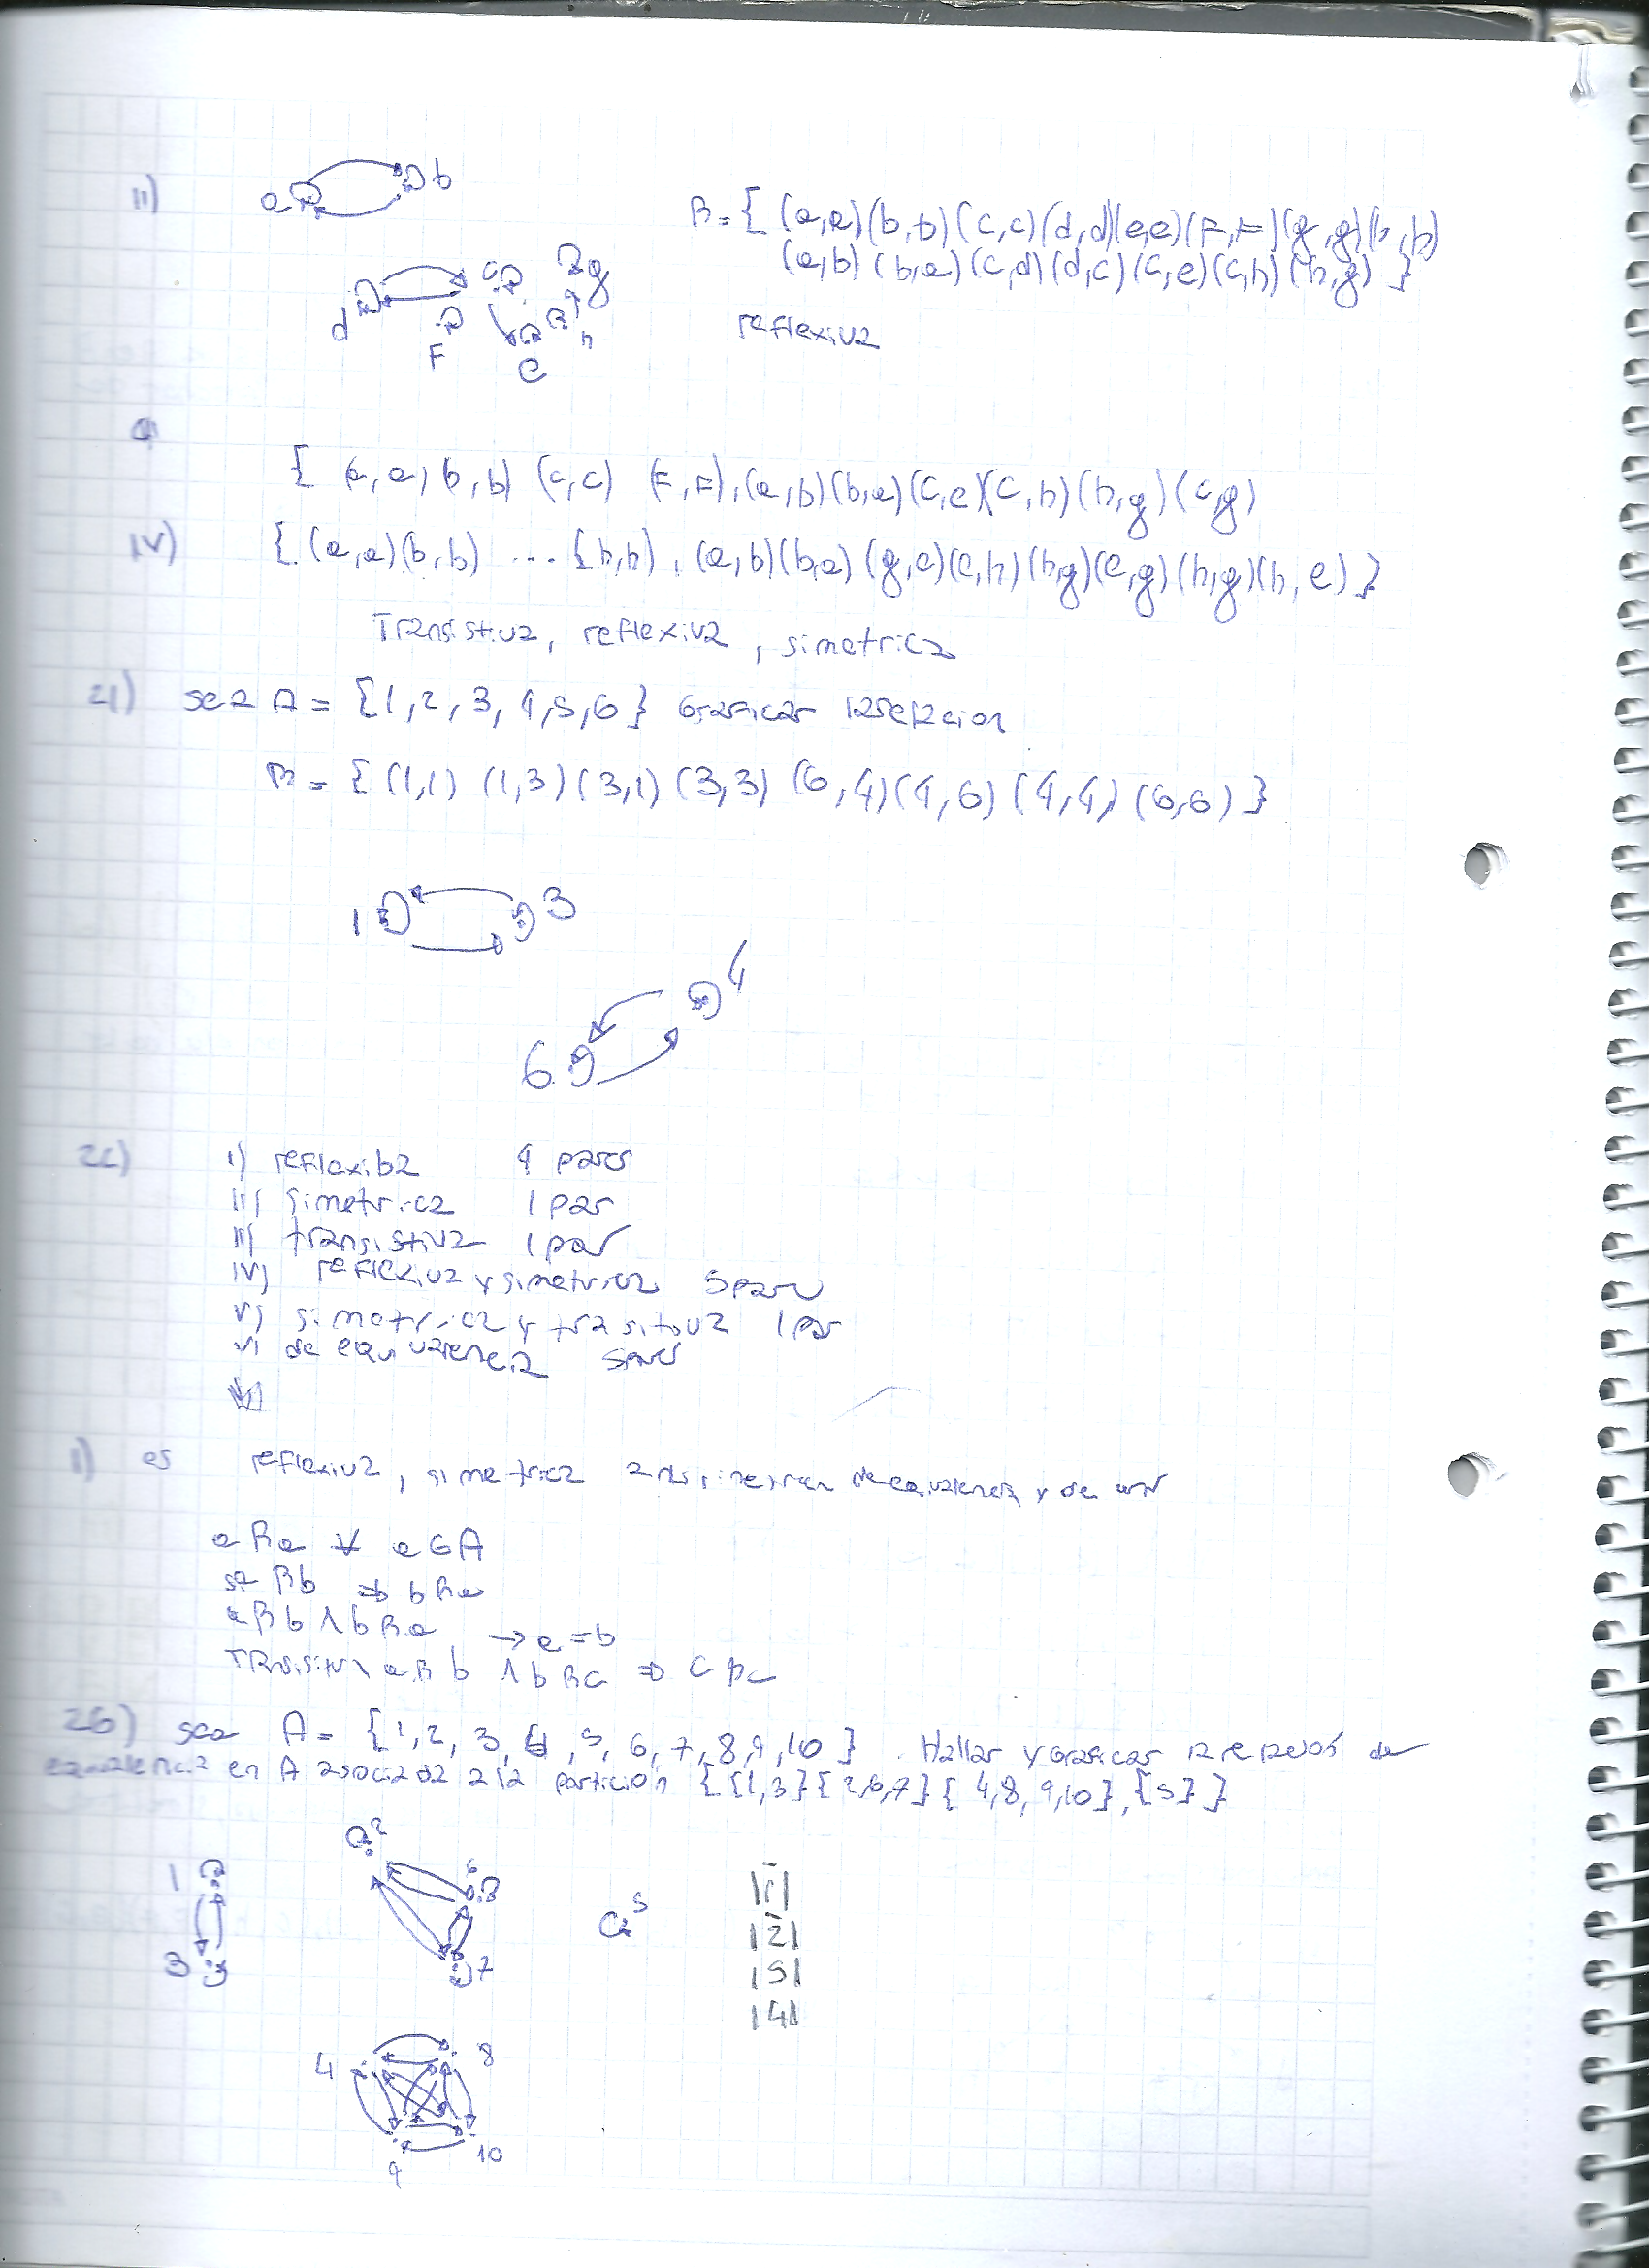 II) a b
R = { (a,a)(b,b)(c,c)(d,d)(e,e)(F,F)(g,g)(h,h)
(a,b)(b,a)(c,d)(d,c)(c,e)(c,h)(h,g) }
d c g
F e h
reflexiva
{ (a,a) (b,b) (c,c) (F,F), (a,b)(b,a)(c,e)(c,h)(h,g)(c,g)
IV) { (a,a)(b,b) ... (h,h), (a,b)(b,a)(g,e)(e,h)(h,g)(e,g)(h,g)(h,e) }
Transistiva, reflexiva, simetrica
21) sea A = {1,2,3,4,5,6} Graficar la relacion
R = { (1,1) (1,3)(3,1)(3,3) (6,4)(4,6) (4,4) (6,6) }
1 3
4
6
22) I) reflexiba 4 pares
II) simetrica 1 par
II) transistiva 1 par
IV) reflexiva y simetrica 5 pares
V) simetrica y trasitiva 1 par
VI de equivalencia 5 pares
I) es reflexiva, simetrica de equivalencia y de
a R a ∀ a ∈ A
R b ⇒ b R a
a R b ∧ b R a → a = b
a R b ∧ b R c ⇒
26) sea A = {1,2,3,4,5,6,7,8,9,10}. Hallar y Graficar la relacion de
equivalencia en A asociada a la partición {{1,3}{2,6,7}{4,8,9,10},{5}}
2
1 6 5 |1|
|2|
3 7 |5|
|4|
4 8
9 10